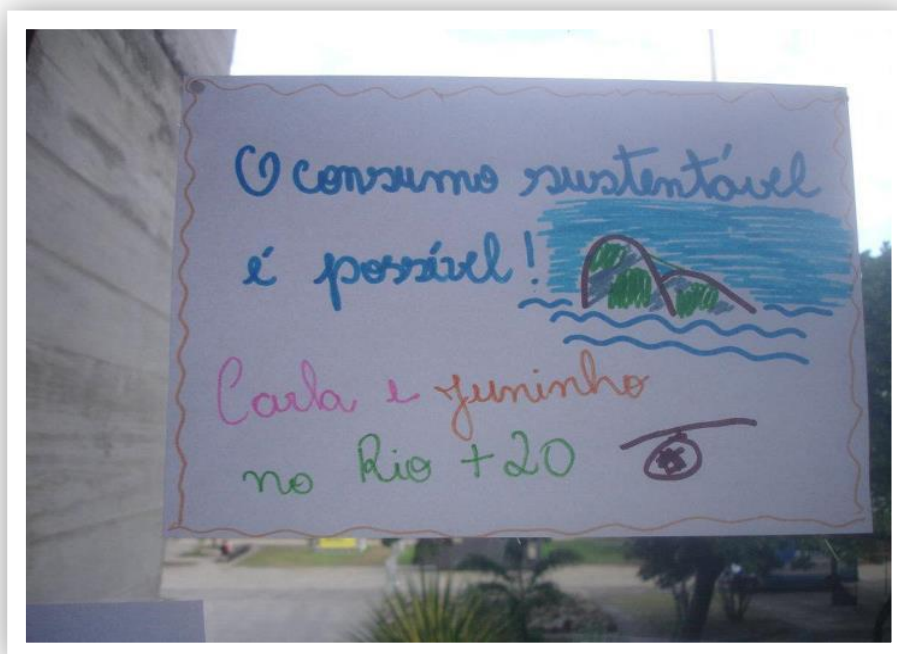 O consumo sustentável
é possível!
Carla e Juninho
no Rio +20